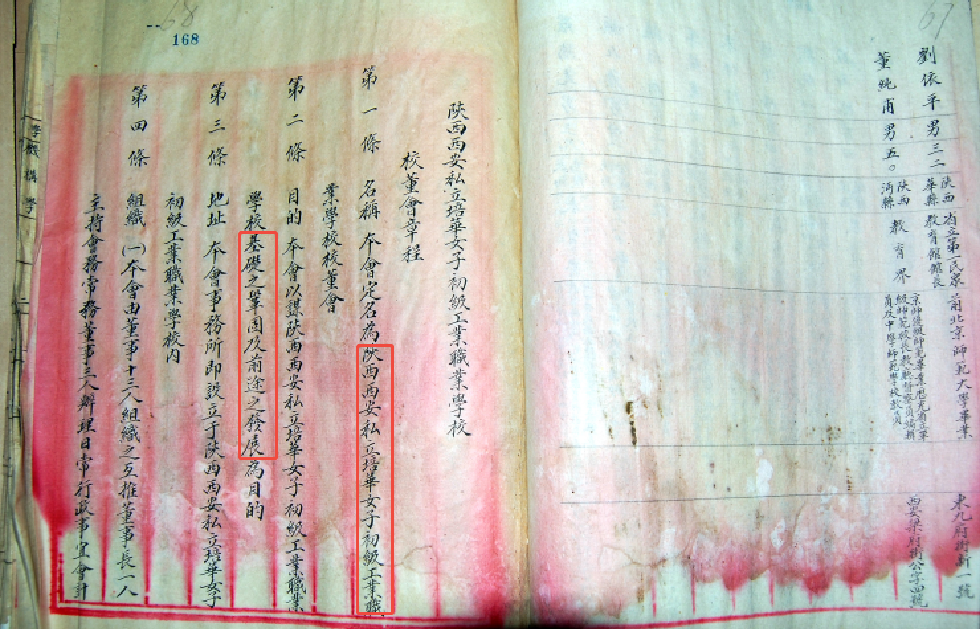 67
劉依平 男 三二 陝西華縣 省立第一民眾教育館館長 前北京師範大學畢業 東九府街新一號
董純甫 男 五〇 陝西 教育界
68
168
陝西西安私立培華女子初級工業職業學校
校董會章程
第一條 名稱 本會定名為陝西西安私立培華女子初級工業職
業學校校董會
第二條 目的 本會以謀陝西西安私立培華女子初級工業職業
學校基礎之鞏固及前途之發展為目的
第三條 地址 本會事務所即設立于陝西西安私立培華女子
初級工業職業學校內
第四條 組織 (一)本會由董事十三人組織之互推董事長一人
主持會務常務董事三人辦理日常行政事宜會計